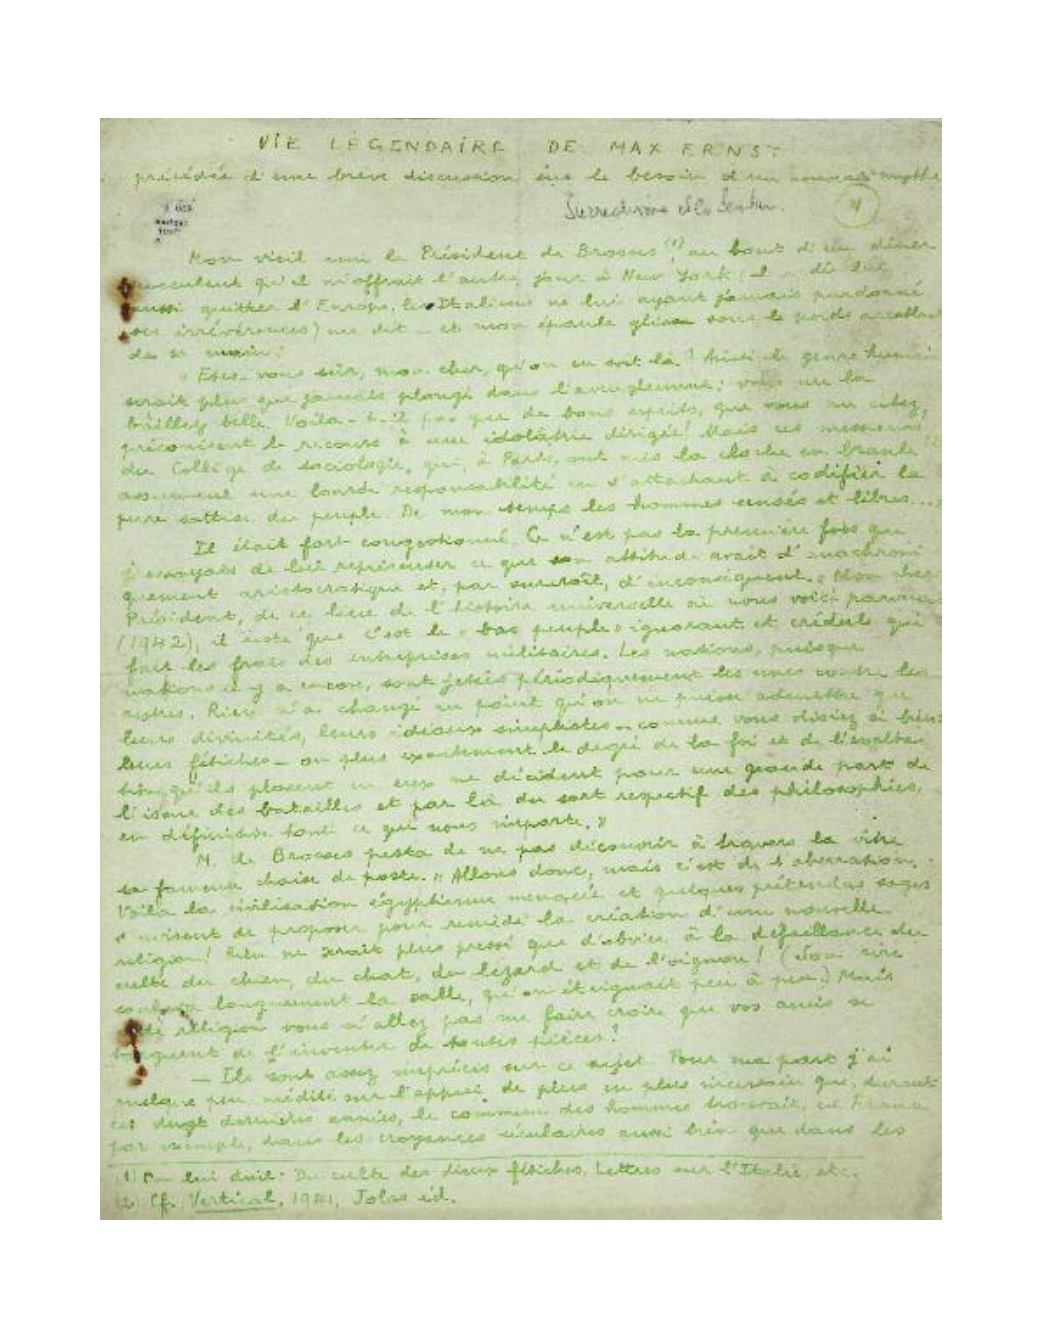 VIE LÉGENDAIRE DE MAX ERNST
précédée d'une brève discussion sur le besoin d'un nouveau mythe
Surréalisme et la
4
Mon vieil ami le Président de Brosses (1), au bout d'un dîner
succulent qu'il m'offrait l'autre jour à New York (il a dû lui
aussi quitter l'Europe, les Italiens ne lui ayant jamais pardonné
ses irrévérences) me dit – et mon épaule glissa sous le poids accablant
de sa main :
« Êtes-vous sûr, mon cher, qu'on en soit là ? Ainsi le genre humain
serait plus que jamais plongé dans l'aveuglement ; vous me la
baillez belle. Voilà-t-il pas que de bons esprits, que vous me citez,
préconisent le recours à une idolâtrie dirigée ! Mais ces messieurs
du Collège de sociologie, qui, à Paris, ont mis la cloche en branle (2)
assument une lourde responsabilité en s'attachant à codifier la
pure sottise du peuple. De mon temps les hommes sensés et libres...»
Il était fort congestionné. Ce n'est pas la première fois que
j'essayais de lui représenter ce que son attitude avait d'anachroni
quement aristocratique et, par surcroît, d'inconséquent. « Mon cher
Président, de ce lieu de l'histoire universelle où nous voici parvenus
(1942), il reste que c'est le « bas peuple » ignorant et crédule qui
fait les frais des entreprises militaires. Les nations, puisque
nations il y a encore, sont jetées périodiquement les unes contre les
autres. Rien n'a changé au point qu'on ne puisse admettre que
leurs divinités, leurs idéaux simplistes – comme vous disiez si bien
leurs fétiches – ou plus exactement le degré de la foi et de l'exalta-
tion qu'ils placent en eux ne décident pour une grande part de
l'issue des batailles et par là du sort respectif des philosophies,
en définitive tout ce qui nous importe. »
M. de Brosses pesta de ne pas découvrir à travers la vitre
sa fameuse chaise de poste. « Allons donc, mais c'est de l'aberration.
Voilà la civilisation égyptienne menacée et quelques prétendus sages
s'avisent de proposer pour remède la création d'une nouvelle
religion ! Rien ne serait plus pressé que d'obvier à la défaillance du
culte du chien, du chat, du lézard et de l'oignon ! (Son rire
longuement la salle, qu'on éteignait peu à peu.) Mais
religion vous n'allez pas me faire croire que vos amis se
targuent de l'inventer de toutes pièces !
– Ils sont assez imprécis sur ce sujet. Pour ma part j'ai
quelque peu médité sur l'appui de plus en plus incertain que, durant
ces vingt dernières années, le commun des hommes trouvait, en France
par exemple, dans les croyances séculaires aussi bien que dans les
(1) On lui doit : Du culte des dieux fétiches, Lettres sur l'Italie, etc.
(2) Cf. Vertical, 1941, Jolas éd.